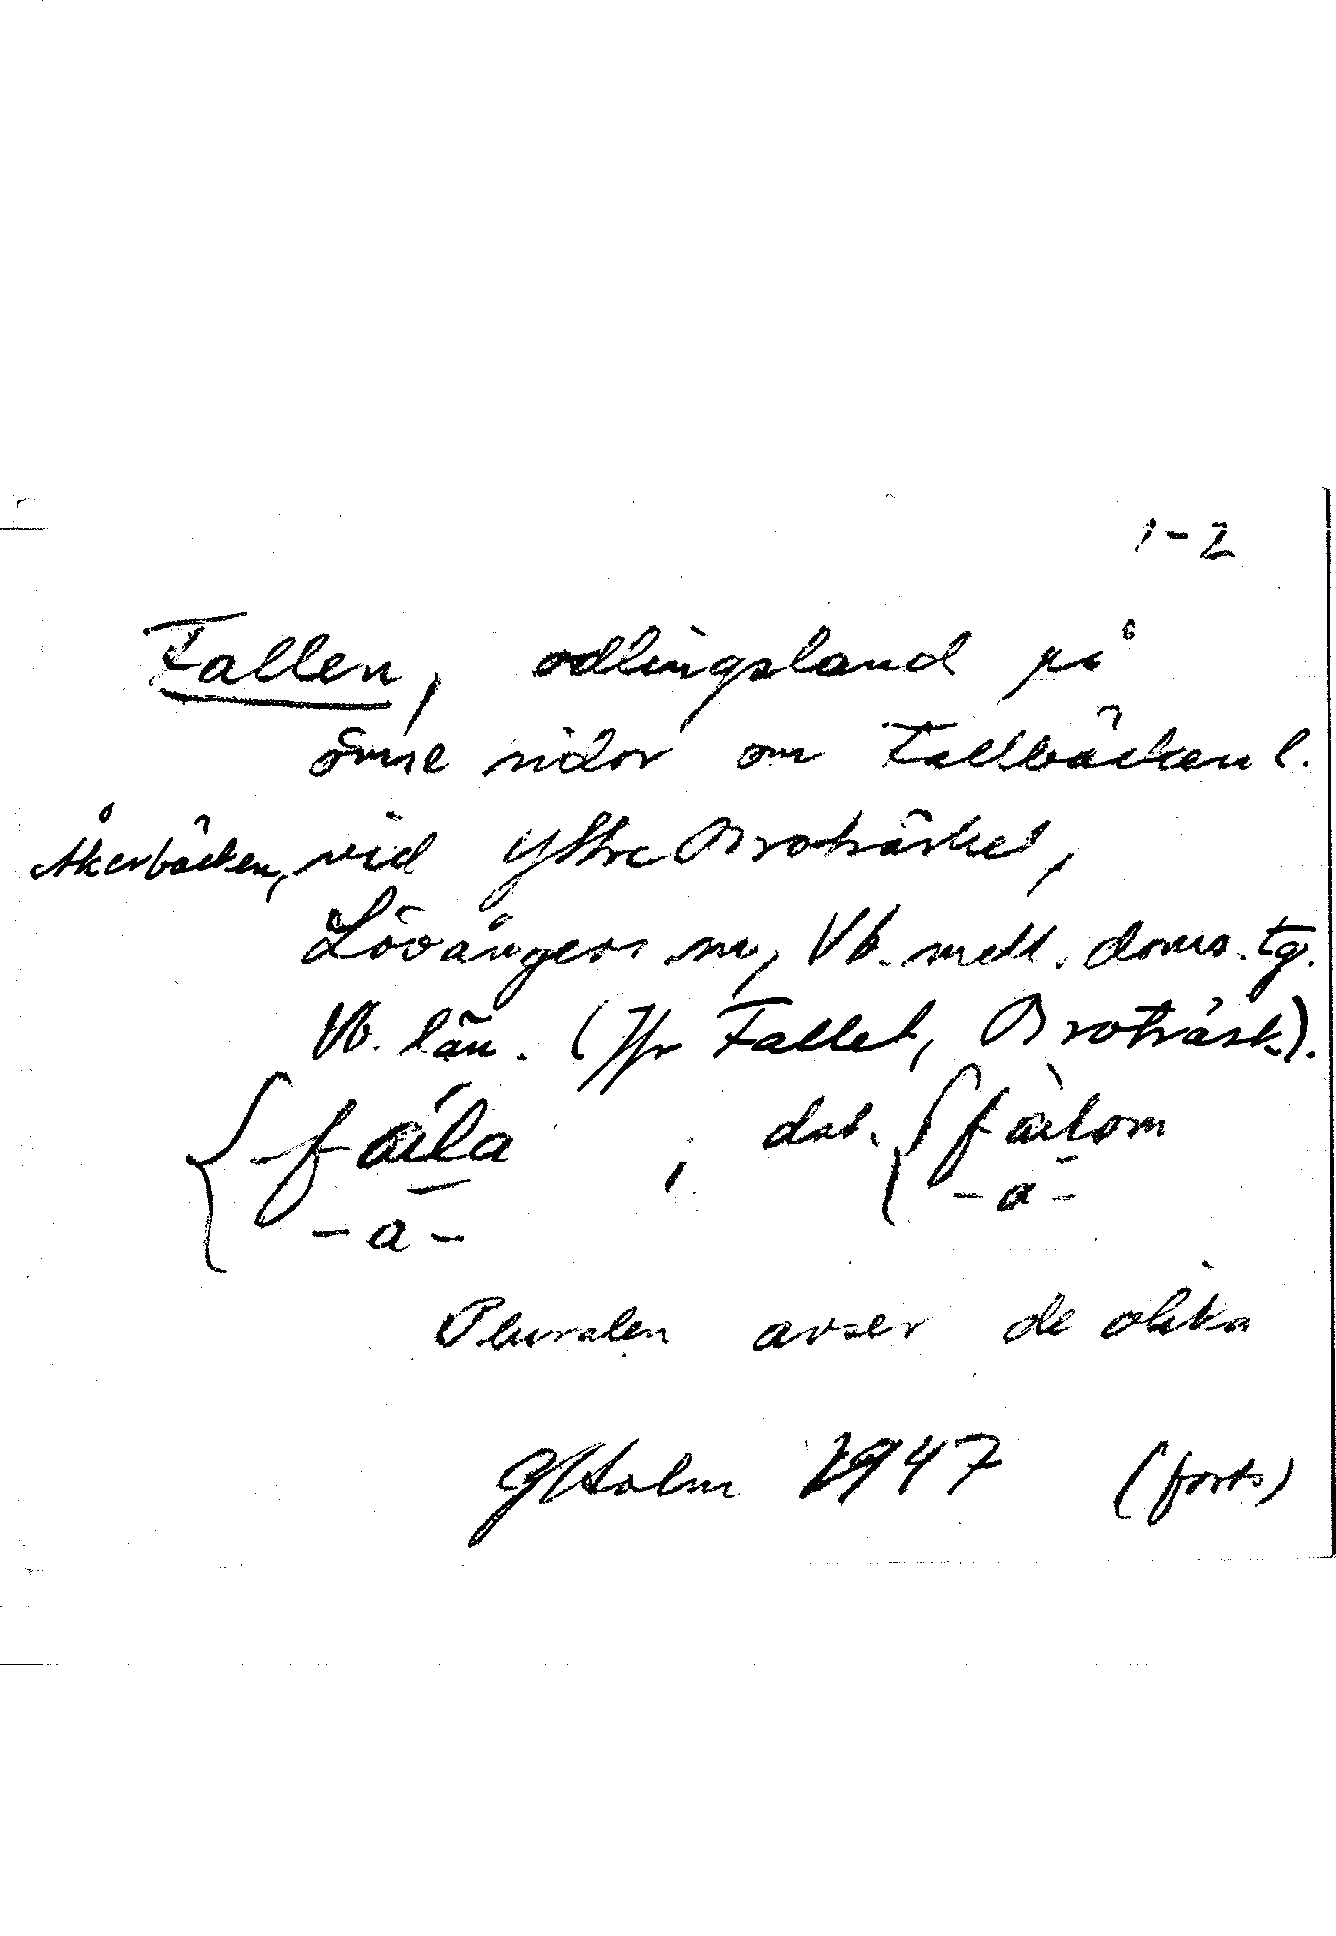 1-2
Fallen, odlingsland på
ömse sidor om Fallbäcken l.
Åkerbäcken, vid Yttre Broträsket,
Lövångers sn, Vb. mell. doms. tg.
Vb. län. (Jfr Fallet, Broträsk.).
{ fála , dat. { fàlom
-a- -a-
Pluralen avser de olika
GHolm 1947 (forts)